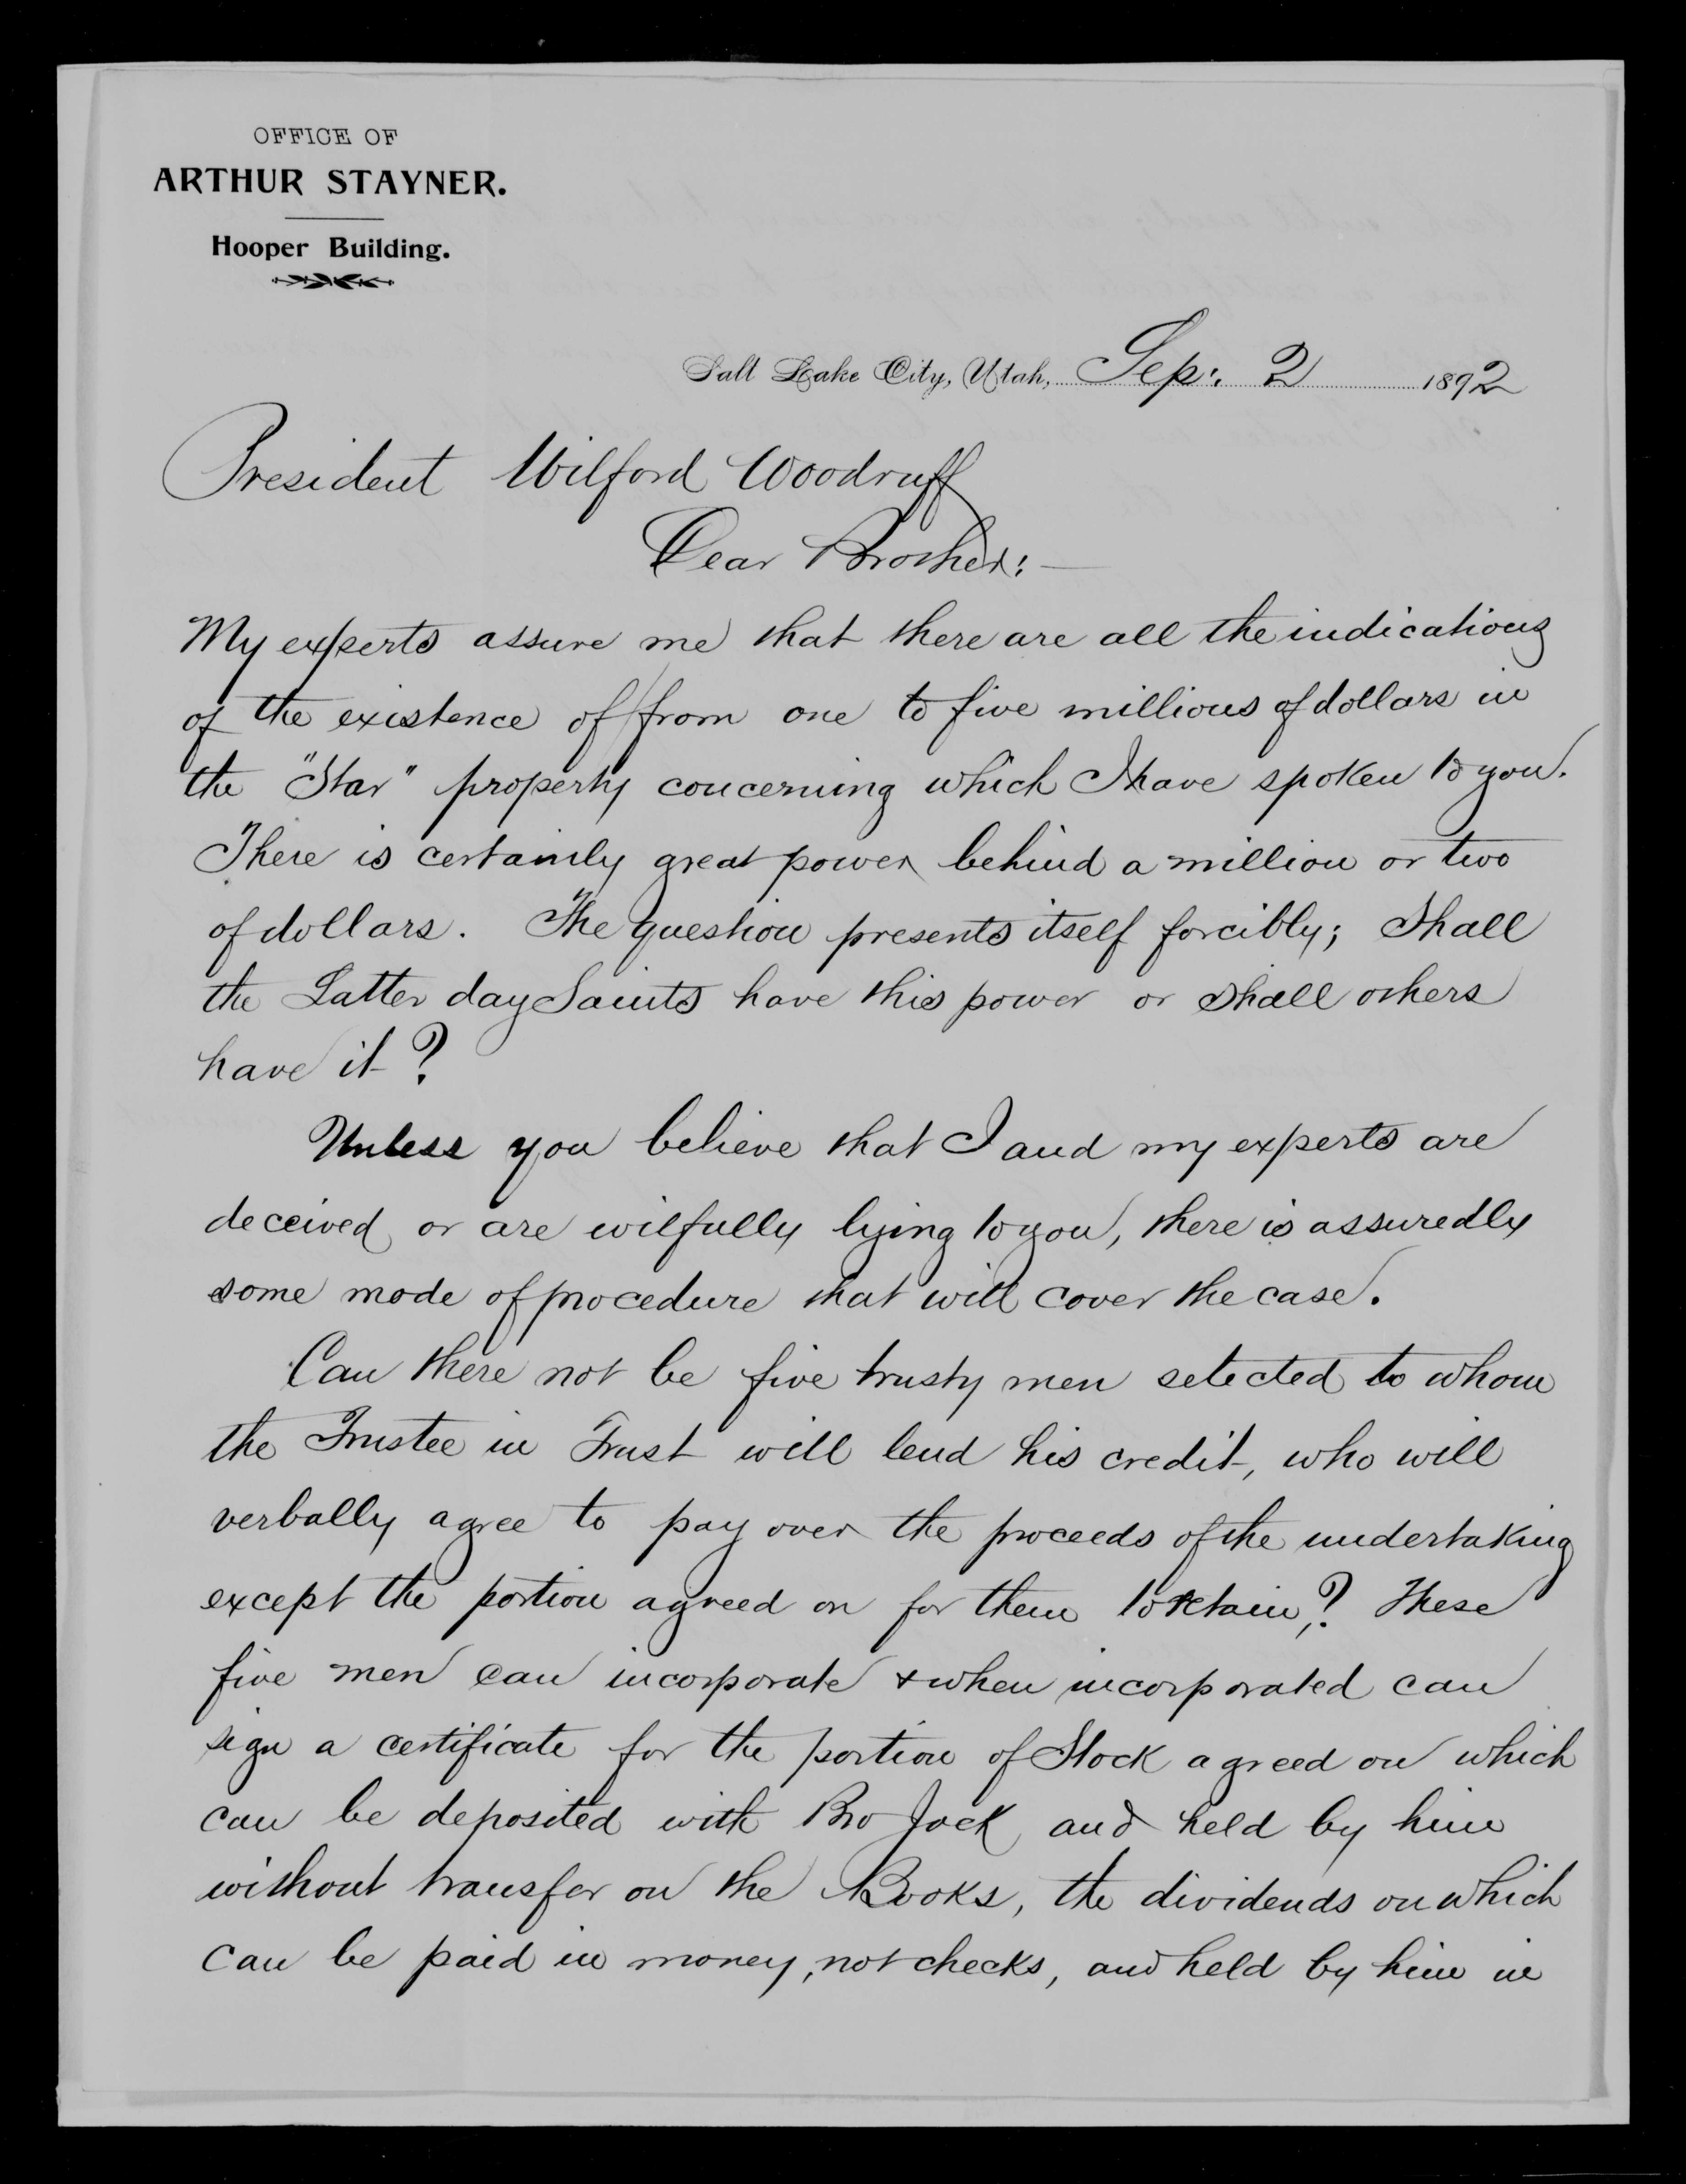 OFFICE OF
ARTHUR STAYNER.
Hooper Building.
Salt Lake City, Utah, Sep. 2 1892
President Wilford Woodruff
Dear Brother:—
My experts assure me that there are all the indications
of the existence of from one to five millions of dollars in
the "Star" property concerning which I have spoken to you.
There is certainly great power behind a million or two
of dollars. The question presents itself forcibly; Shall
the Latter day Saints have this power or shall others
have it?
Unless you believe that I and my experts are
deceived or are wilfully lying to you, there is assuredly
some mode of procedure that will cover the case.
Can there not be five trusty men selected to whom
the Trustee in Trust will lend his credit, who will
verbally agree to pay over the proceeds of the undertaking
except the portion agreed on for them to retain,? These
five men can incorporate & when incorporated can
sign a certificate for the portion of Stock agreed on which
can be deposited with Bro Jack and held by him
without transfer on the Books, the dividends on which
can be paid in money, not checks, and held by him in